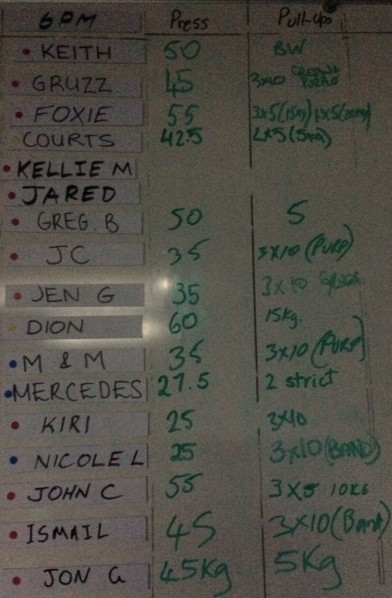 6PM Press Pull-ups
KEITH 50 BW
GRUZZ 45 3x10
FOXIE 55 3x5(15kg) 1x5(20kg)
COURTS 42.5 2x5(5kg)
KELLIE M
JARED
GREG. B 50 5
JC 35 3x10 (PURP)
JEN G 35 3x10
DION 60 15kg.
M & M 35 3x10 (PURP)
MERCEDES 27.5 2 strict
KIRI 25 3x10
NICOLE L 25 3x10(BAND)
JOHN C 55 3x5 10KG
ISMAIL 45 3x10(Band)
JON G 45Kg 5Kg